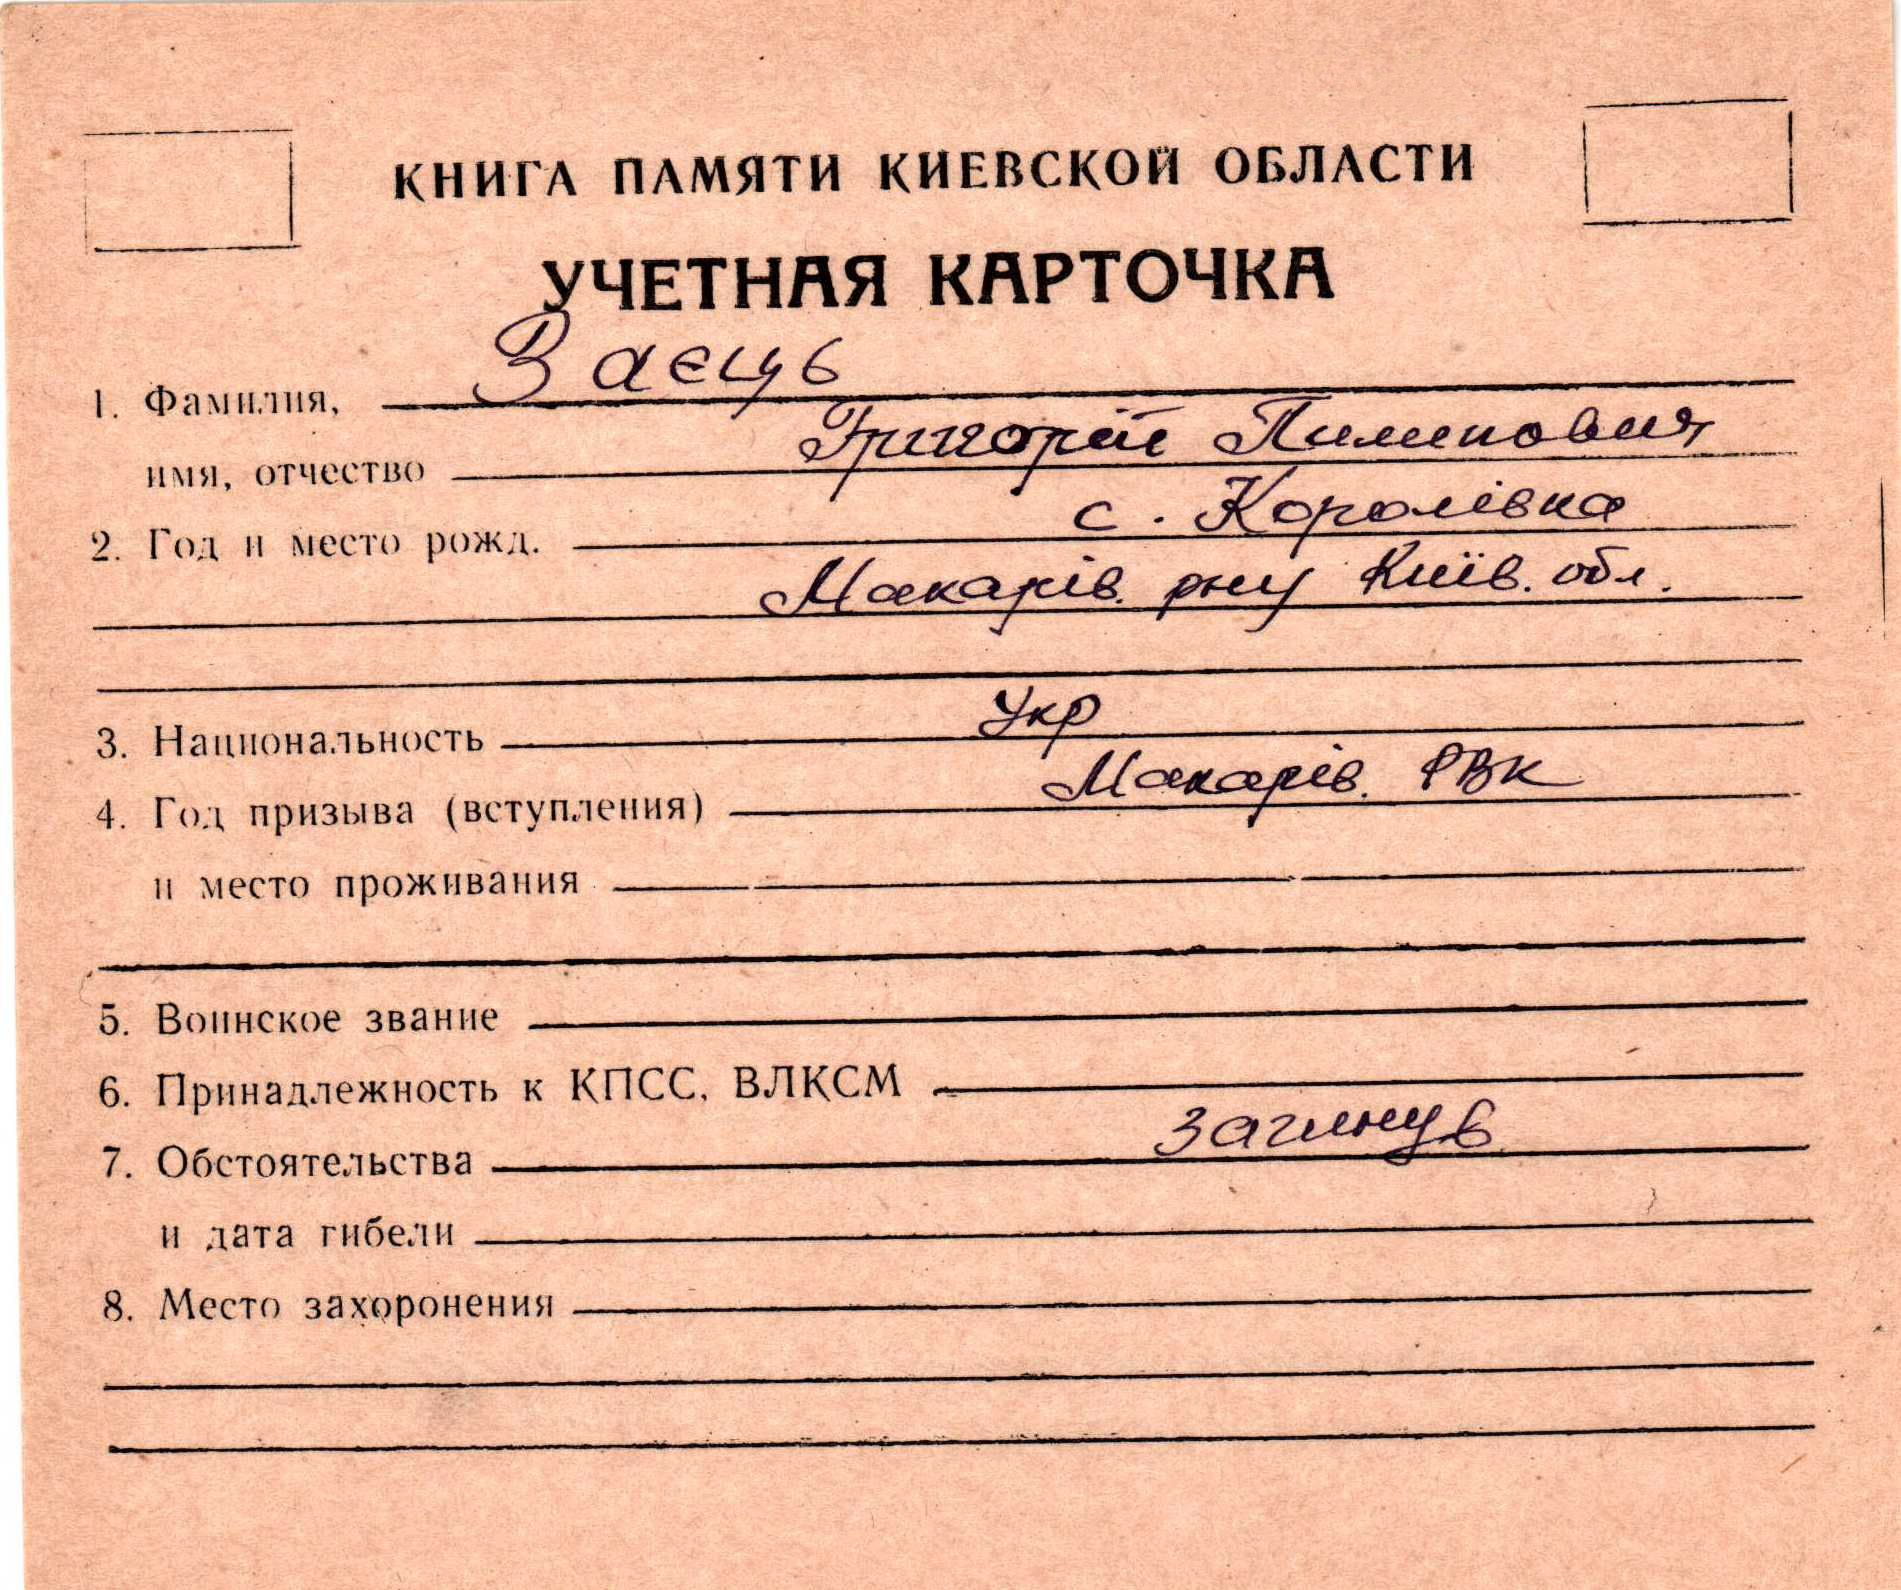 КНИГА ПАМЯТИ КИЕВСКОЙ ОБЛАСТИ
УЧЕТНАЯ КАРТОЧКА
1. Фамилия, Заєць
имя, отчество Григорій Пименович
2. Год и место рожд. с. Королівка
Макарів. рну Київ. обл.
3. Национальность Укр
4. Год призыва (вступления) Макарів. РВК
и место проживания
5. Воинское звание
6. Принадлежность к КПСС, ВЛКСМ
7. Обстоятельства загинув
и дата гибели
8. Место захоронения